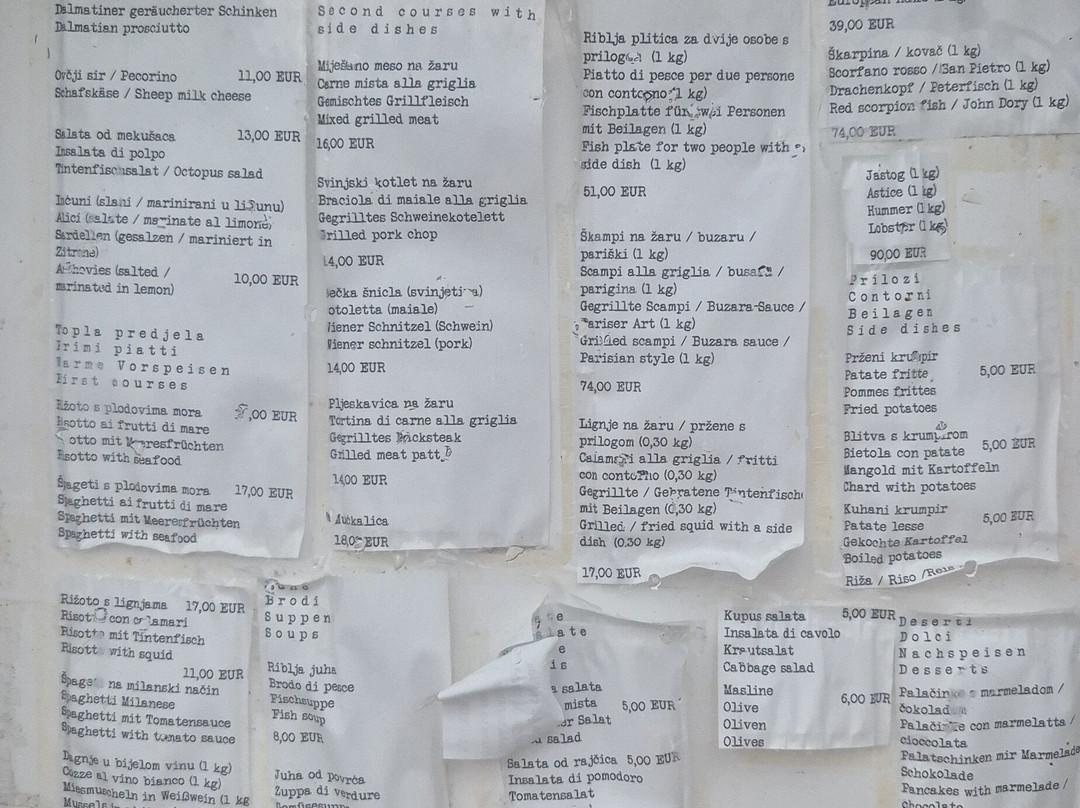 Dalmatiner geräucherter Schinken
Dalmatian prosciutto
Ovčji sir / Pecorino 11,00 EUR
Schafskäse / Sheep milk cheese
Salata od mekušaca 13,00 EUR
Insalata di polpo
Tintenfischsalat / Octopus salad
Inćuni (slani / marinirani u limunu)
Alici (salate / marinate al limone)
Sardellen (gesalzen / mariniert in
Zitrone)
Anchovies (salted / 10,00 EUR
marinated in lemon)
Topla predjela
Primi piatti
Warme Vorspeisen
First courses
Rižoto s plodovima mora ,00 EUR
Risotto ai frutti di mare
otto mit Meeresfrüchten
Risotto with seafood
Špageti s plodovima mora 17,00 EUR
Spaghetti ai frutti di mare
Spaghetti mit Meeresfrüchten
Spaghetti with seafood
Second courses with
side dishes
Miješano meso na žaru
Carne mista alla griglia
Gemischtes Grillfleisch
Mixed grilled meat
16,00 EUR
Svinjski kotlet na žaru
Braciola di maiale alla griglia
Gegrilltes Schweinekotelett
Grilled pork chop
14,00 EUR
ečka šnicla (svinjetina)
otoletta (maiale)
Wiener Schnitzel (Schwein)
Wiener schnitzel (pork)
14,00 EUR
Pljeskavica na žaru
Tortina di carne alla griglia
Gegrilltes Hacksteak
Grilled meat patty
14,00 EUR
18,00 EUR
Riblja plitica za dvije osobe s
prilogom (1 kg)
Piatto di pesce per due persone
con contorno (1 kg)
Fischplatte für zwei Personen
mit Beilagen (1 kg)
Fish plate for two people with a
side dish (1 kg)
51,00 EUR
Škampi na žaru / buzaru /
pariški (1 kg)
Scampi alla griglia / busara /
parigina (1 kg)
Gegrillte Scampi / Buzara-Sauce /
Pariser Art (1 kg)
Grilled scampi / Buzara sauce /
Parisian style (1 kg)
74,00 EUR
Lignje na žaru / pržene s
prilogom (0,30 kg)
Calamari alla griglia / fritti
con contorno (0,30 kg)
Gegrillte / Gebratene Tintenfische
mit Beilagen (0,30 kg)
Grilled / fried squid with a side
dish (0,30 kg)
17,00 EUR
39,00 EUR
Škarpina / kovač (1 kg)
Scorfano rosso / San Pietro (1 kg)
Drachenkopf / Peterfisch (1 kg)
Red scorpion fish / John Dory (1 kg)
74,00 EUR
Jastog (1 kg)
Astice (1 kg)
Hummer (1 kg)
Lobster (1 kg)
90,00 EUR
Prilozi
Contorni
Beilagen
Side dishes
Prženi krumpir
Patate fritte 5,00 EUR
Pommes frittes
Fried potatoes
Blitva s krumpirom
Bietola con patate 5,00 EUR
Mangold mit Kartoffeln
Chard with potatoes
Kuhani krumpir
Patate lesse 5,00 EUR
Gekochte Kartoffel
Boiled potatoes
Riža / Riso / Reis
Rižoto s lignjama 17,00 EUR
Risotto con calamari
Risotto mit Tintenfisch
Risotto with squid
11,00 EUR
Špageti na milanski način
Spaghetti Milanese
Spaghetti mit Tomatensauce
Spaghetti with tomato sauce
Dagnje u bijelom vinu (1 kg)
Cozze al vino bianco (1 kg)
Miesmuscheln in Weißwein (1 kg
Mussels
Brodi
Suppen
Soups
Riblja juha
Brodo di pesce
Fischsuppe
Fish soup
8,00 EUR
Juha od povrća
Zuppa di verdure
salata
mista 5,00 EUR
Salat
salad
Salata od rajčica 5,00 EUR
Insalata di pomodoro
Tomatensalat
Kupus salata 5,00 EUR
Insalata di cavolo
Krautsalat
Cabbage salad
Masline
Olive 6,00 EUR
Oliven
Olives
Deserti
Dolci
Nachspeisen
Desserts
Palačinke s marmeladom /
čokoladom
Palačinke con marmelatta /
cioccolata
Palatschinken mir Marmelade
Schokolade
Pancakes with marmelade /
Chocolate